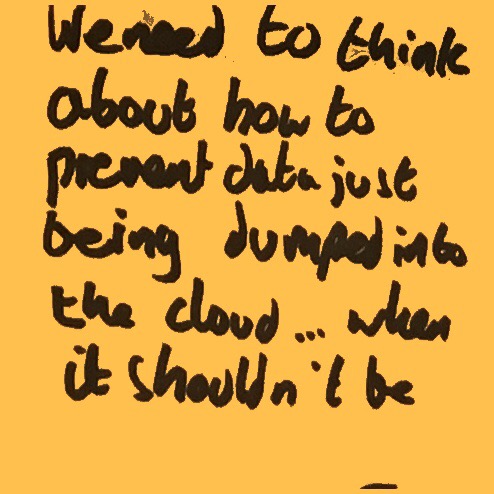 We need to think
about how to
prevent data just
being dumped into
the cloud... when
it shouldn't be